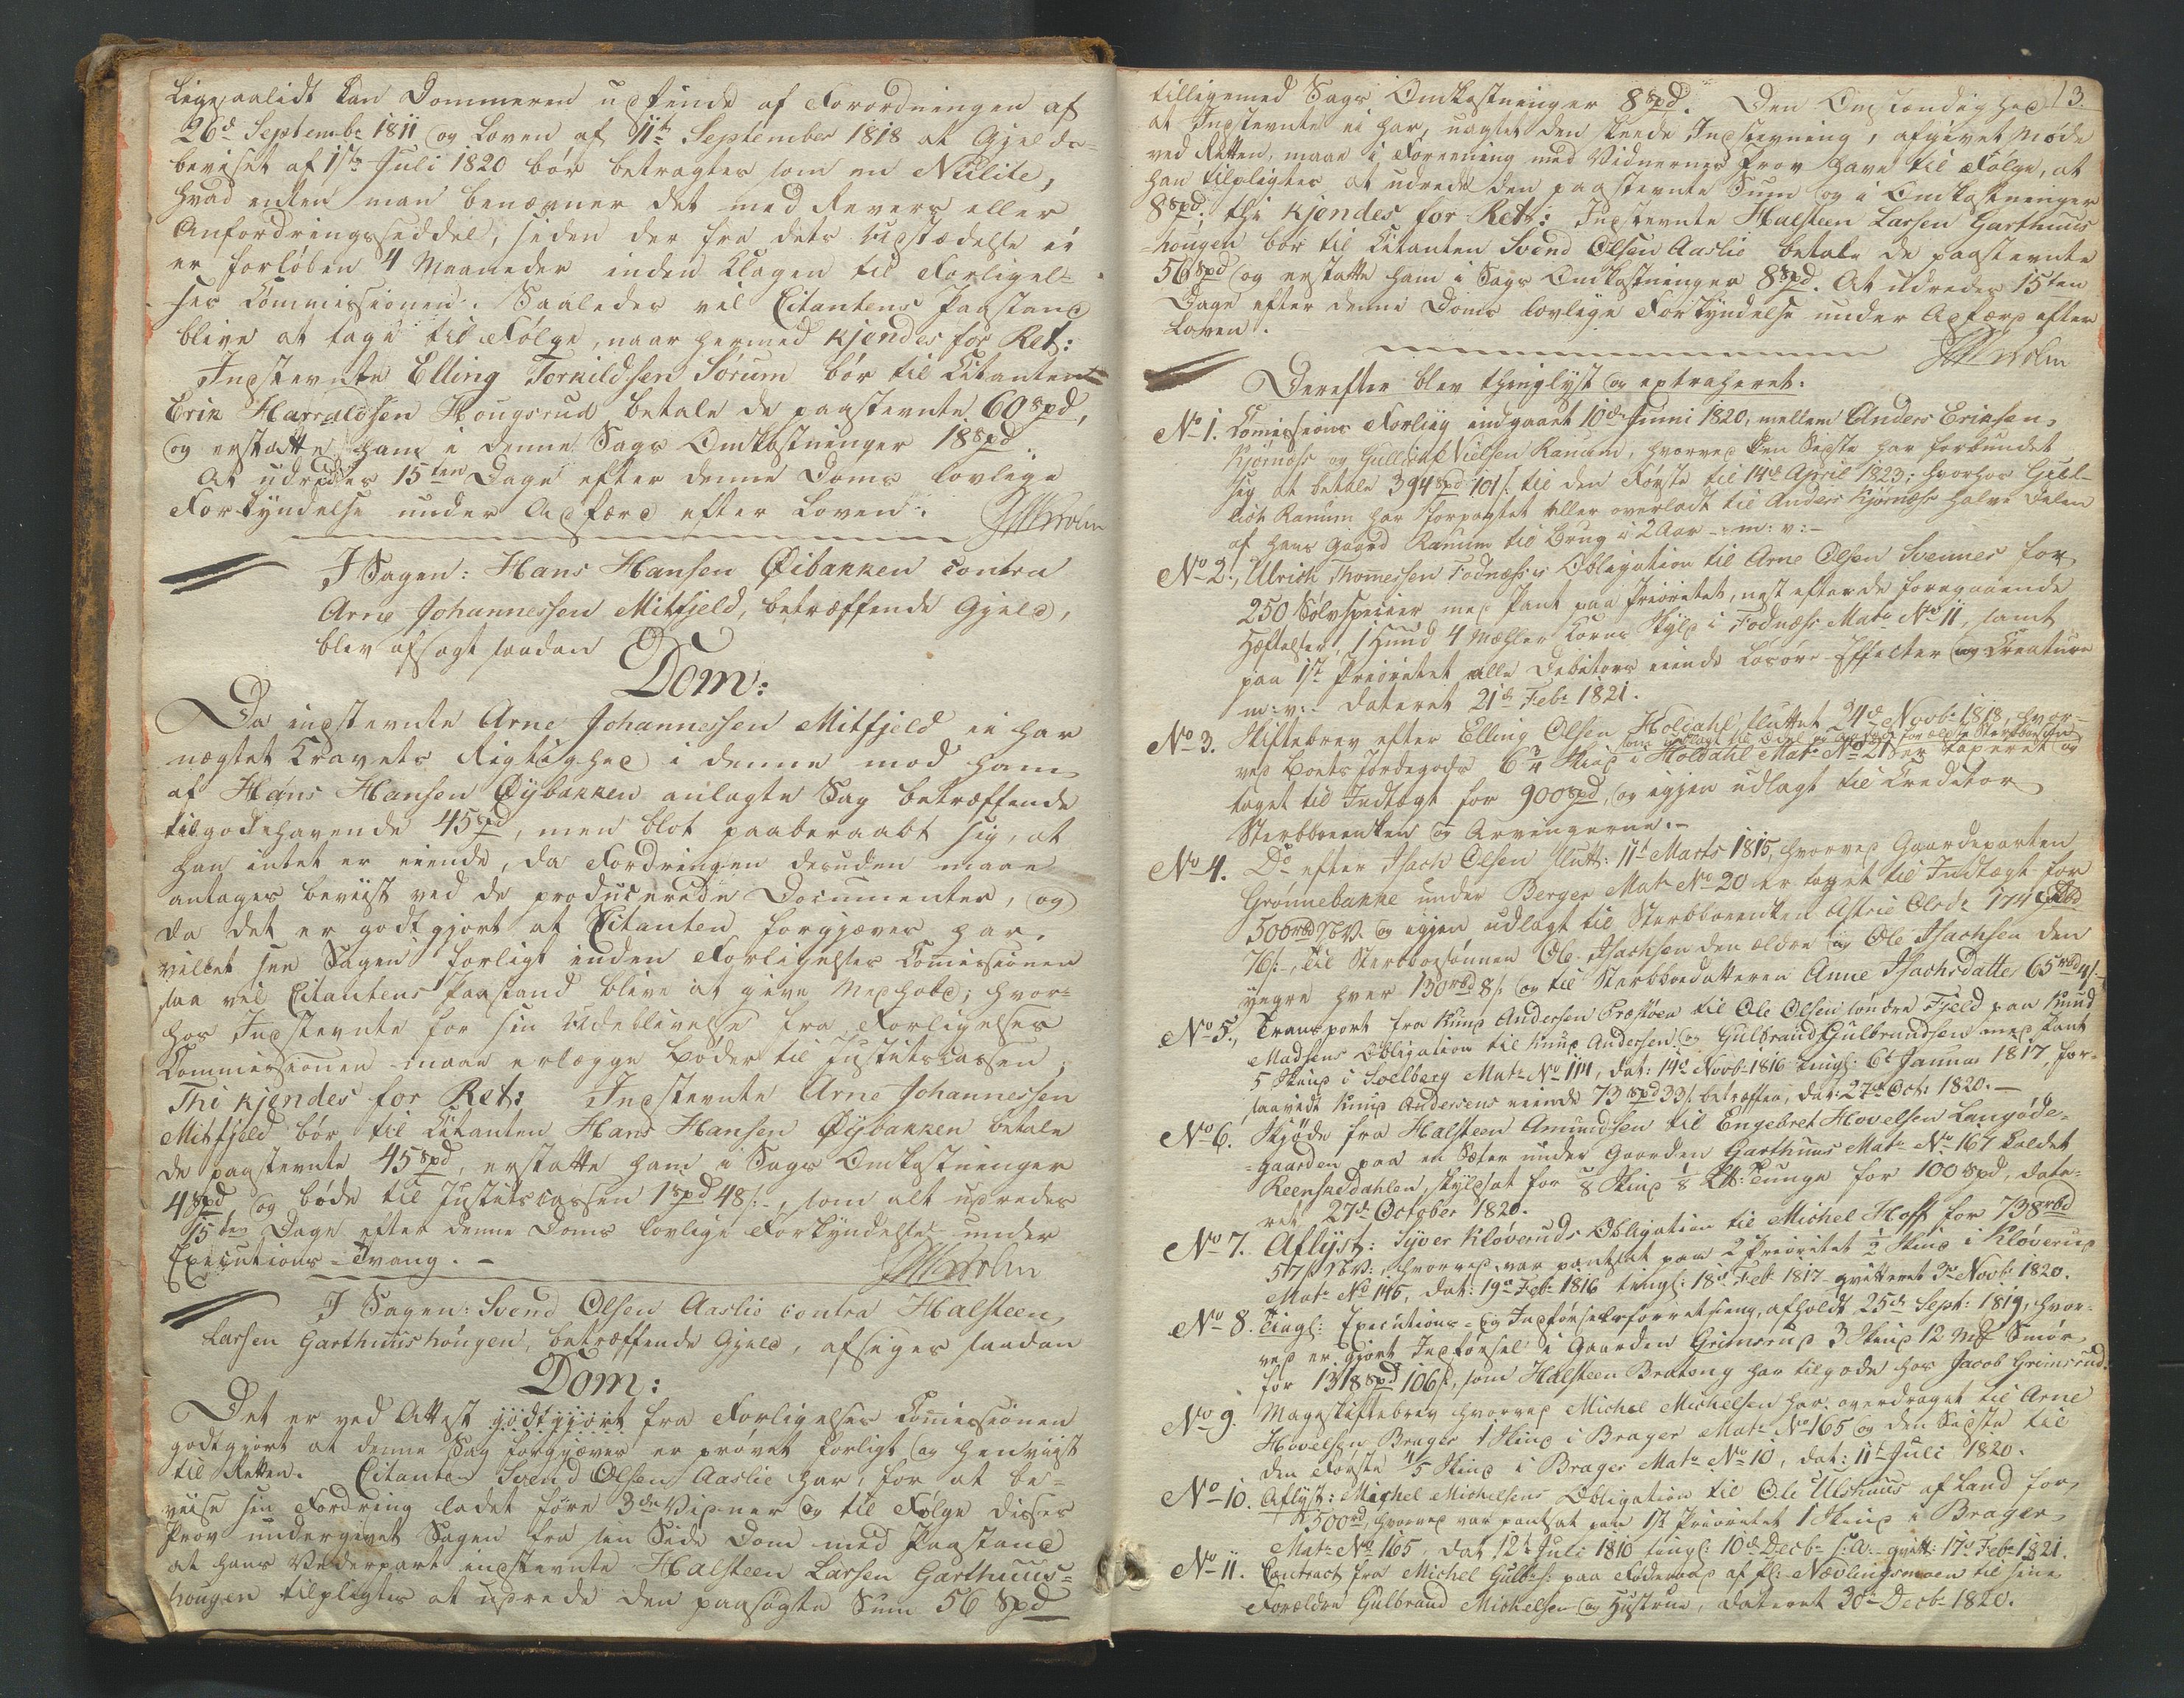 Ligesaalidt kan Dommeren udfinde af Forordningen af
26d Septembr 1811 og Loven af 11te September 1818 at Gjelds-
beviset af 1ste Juli 1820 bør betragtes som en Nulite,
hvad enten man benævner det med Revers eller
Anfordringsseddel, siden der fra dets Udstædelse ei
er forløben 4 Maaneder inden Klagen til Forligel-
ses Commissionen. Saaledes vil Citantens Paastand
blive at tage til Følge, naar hermed kjendes for Ret:
Indstevnte Elling Torkildsen Sørum bør til Citanten
Erik Harraldsen Hougsrud betale de paastevnte 60 Spd,
og erstatte ham i denne Sags Omkostninger 18 Spd.
At udredes 15ten Dage efter denne Doms lovlige
Forkyndelse under Adfærd efter Loven.
I Sagen: Hans Hansen Øibakken contra
Arne Johannessen Mitfjeld, betræffende Gjeld,
blev afsagt saadan
Dom:
Da indstevnte Arne Johannessen Mitfjeld ei har
nægtet Kravets Rigtighed i denne mod ham
af Hans Hansen Øybakken anlagte Sag betræffende
tilgodehavende 45 Spd, men blot paaberaabt sig, at
han intet er eiende, da Fordringen desuden maae
antages beviist ved de producerede Documenter, og
da det er godtgjort at Citanten forgjæves har
villet see Sagen forligt inden Forligelses Comissionen
saa vil Citantens Paastand blive at give Medhold; hvor-
hos Indstevnte for sin Udeblivelse fra Forligelses
Commissionen maae erlægge Bøder til Justitscassen,
Thi kjendes for Ret: Indstevnte Arne Johannessen
Mitfjeld bør til Citanten Hans Hansen Øybakken betale
de paastevnte 45 Spd, erstatte ham i Sags Omkostninger
4 Spd og bøde til Justitscassen 1 Spd 48 s:, som alt udredes
15ten Dage efter denne Doms lovlige Forkyndelse under
Executions-Tvang. -
I Sagen: Svend Olsen Aaslie contra Halsteen
Larsen Garthuushougen, betræffende Gjeld, afsiges saadan
Dom:
Det er ved Attest godtgjort fra Forligelses Comissionen
godtgjort at denne Sag forgjæves er prøvet forligt og henviist
til Retten. Citanten Svend Olsen Aaslie har, for at be-
viise sin Fordring ladet føre 3de Vidner og til Følge disses
Prov undergivet Sagen fra sin Side Dom med Paastand
at hans Vederpart indstevnte Halsteen Larsen Garthuus-
hougen tilpligtes at udrede den paasøgte Sum 56 Spd
13.
tilligemed Sags Omkostninger 8 Spd. Den Omstændighed
at Indstevnte ei har, uagtet den skeede Indstevning, afgivet Møde
ved Retten, maae i Forening med Vidnernes Prov have til Følge, at
han tilpligtes at udrede den paastevnte Sum og i Omkostninger
8 Spd. Thi kjendes for Ret: Indstevnte Halsteen Larsen Garthuus-
hougen bør til Citanten Svend Olsen Aaslie betale de paastevnte
56 Spd og erstatte ham i Sags Omkostninger 8 Spd. At udredes 15ten
Dage efter denne Doms lovlige Forkyndelse under Adfærd efter
Loven.
Derefter blev thinglyst og extraheret:
No 1. Comissions Forliig indgaaet 10de Juni 1820, mellem Anders Eriksen
Kjørnæss og Gullik Nielsen Ranum, hvorved den Sidste har forbundet
sig at betale 394 Spd 101 s. til den Første til 14de April 1823; hvorhos Gul-
lik Ranum har forpagtet eller overladt til Anders Kjørnæss halve Delen
af hans Gaard Ranum til Brug i 2 Aar - m: v: -
No 2., Ulrich Thomessen Fodnæss's Obligation til Arne Olsen Svennes for
250 Sølvspecier med Pant paa Prioritet, næst efter de foregaaende
Hæftelser, 1 Hund 4 Mæhler Korns Skyld i Fodnæss Matr No 11, samt
paa 1st Prioritet alle Debitors eiende Løsøre Effecter og Creature
m: v: - dateret 21de Febr 1821.
No 3. Skiftebrev efter Elling Olsen Holdahl sluttet 24de Novbr 1818, hvor-
ved Boets Jordegods 6 3/4 Skind i Holdahl Matr No 21 er taxeret og
taget til Indtægt for 900 Spd, og igjen udlagt til Creditor
Sterbboeenken og Arvingerne. -
No 4. Do efter Isach Olsen slutt: 11te Marts 1815, hvorved Gaardeparten
Grønnebakke under Berger Matr No 20 er taget til Indtægt for
500 rbd NV. og igjen udlagt til Sterbboeenken Astrie Olsdr 174 rbd
76 s., til Sterbboesønnen Ole Isachsen den ældre og Ole Isachsen den
yngre hver 130 rbd 8 s. og til Sterbboedatteren Anne Isachsdatter 65 rbd 4 s.
No 5., Transport fra Knud Andersen Præstøen til Ole Olsen søndre Fjeld paa Knud
Madsens Obligation til Knud Andersen og Gulbrand Gulbrandsen med Pant
5 Skind i Soelberg Matr No 114, dat: 14d Novbr 1816 tingl: 6t Januar 1817, for-
saavidt Knud Andersens eiende 73 Spd 33 s. betræffer, dat: 27de Oct: 1820. -
No 6. Skjøde fra Halsteen Amundsen til Engebret Hovelsen Langøde-
gaarden paa en Sæter under Gaarden Garthuus Matr No 167 kaldet
Reensædahlen, skyldsat for 1/8 Skind 1/8 Lb: Tunge for 100 Spd, date-
ret 27de October 1820.
No 7. Aflyst: Syver Kløveruds Obligation til Michel Hoff for 738 rbd
57 s NV:, hvorved var pantsat paa 2 Prioritet 1/2 Skind i Kløverud
Matr No 145, dat: 19de Febr 1816 tingl: 18d Febr 1817 qvitteret 3d Novbr 1820.
No 8. Tingl: Executions- og Indførselsforretning, afholdt 25de Sept: 1819, hvor-
ved er gjort Indførsel i Gaarden Grimsrud 3 Skind 12 Mk Smør
for 1318 Spd 106 s., som Halsteen Brateng har tilgode hos Jacob Grimsrud.
No 9. Mageskiftebrev hvorved Michel Michelsen har overdraget til Arne
Hovelsen Brager 1 Skind i Brager Matr No 165 og den Sidste til
den Første 4/5 Skind i Brager Matr No 10, dat: 11te Juli 1820.
No 10. Aflyst: Michel Michelsens Obligation til Ole Ulshuus af Land for
500 rd, hvorved var pantsat paa 1st Prioritet 1 Skind i Brager
Matr No 165, dat 12te Juli 1810 tingl: 10de Decbr s: A: qvitt: 17d Febr 1821.
No 11. Contract fra Michel Gulbrs: paa Føderaad af Pl: Nævlingsmoen til sine
Forældre Gulbrand Michelsen og Hustrue, dateret 30te Decbr 1820.